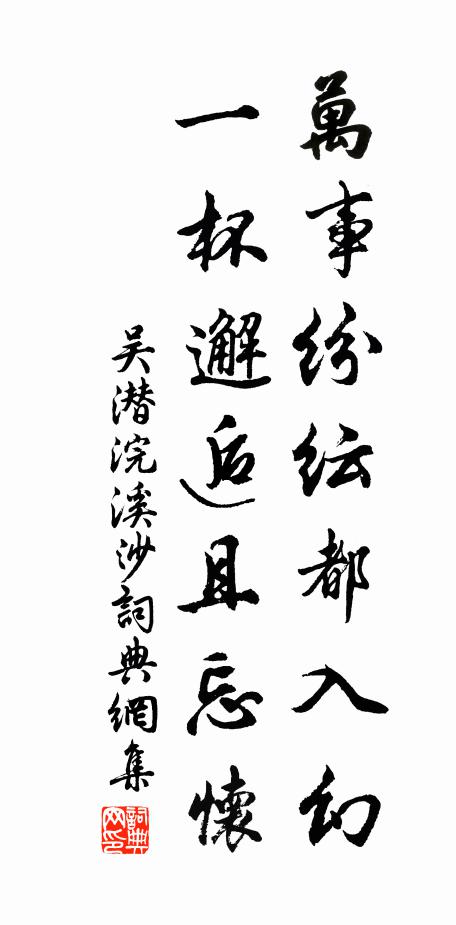 萬事紛紜都入幻
一杯邂逅且忘懷
吴潜浣溪沙詞典網集
詞典
网印